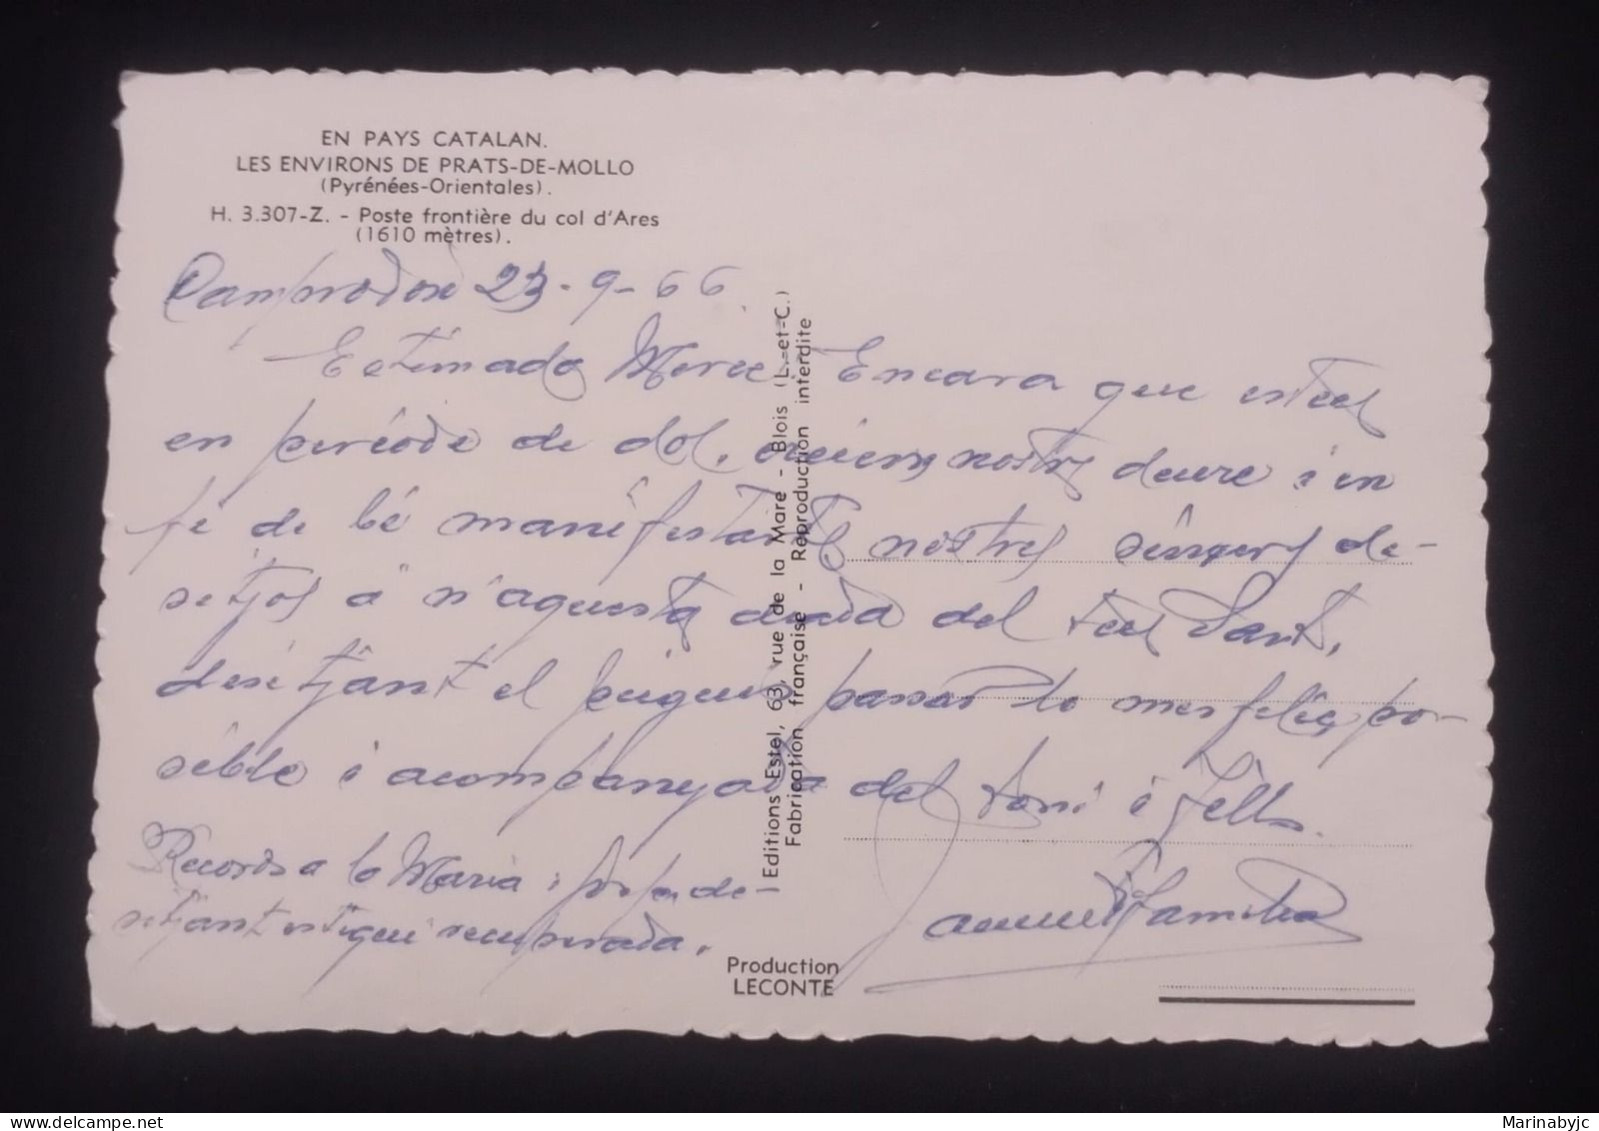 EN PAYS CATALAN.
LES ENVIRONS DE PRATS-DE-MOLLO
(Pyrénées-Orientales).
H. 3.307-Z. - Poste frontière du col d'Ares
(1610 mètres).
Camprodon 23-9-66
Estimada Merce Encara que esteu
en periode de dol, nostre deure i en
fé de bé manifestar nostres sincers de-
sitjos a n'aquesta diada del teu Sant,
desitjant el puigues passar lo mes feliç po-
sible i acompanyada del Toni i fills.
Records a la Maria i de-
sitjant estigui recuperada.
Familia
Editions Estel, 63, rue de la Mare - Blois (L.-et-C.)
Fabrication française - Reproduction interdite
Production
LECONTE
Marinabyjc